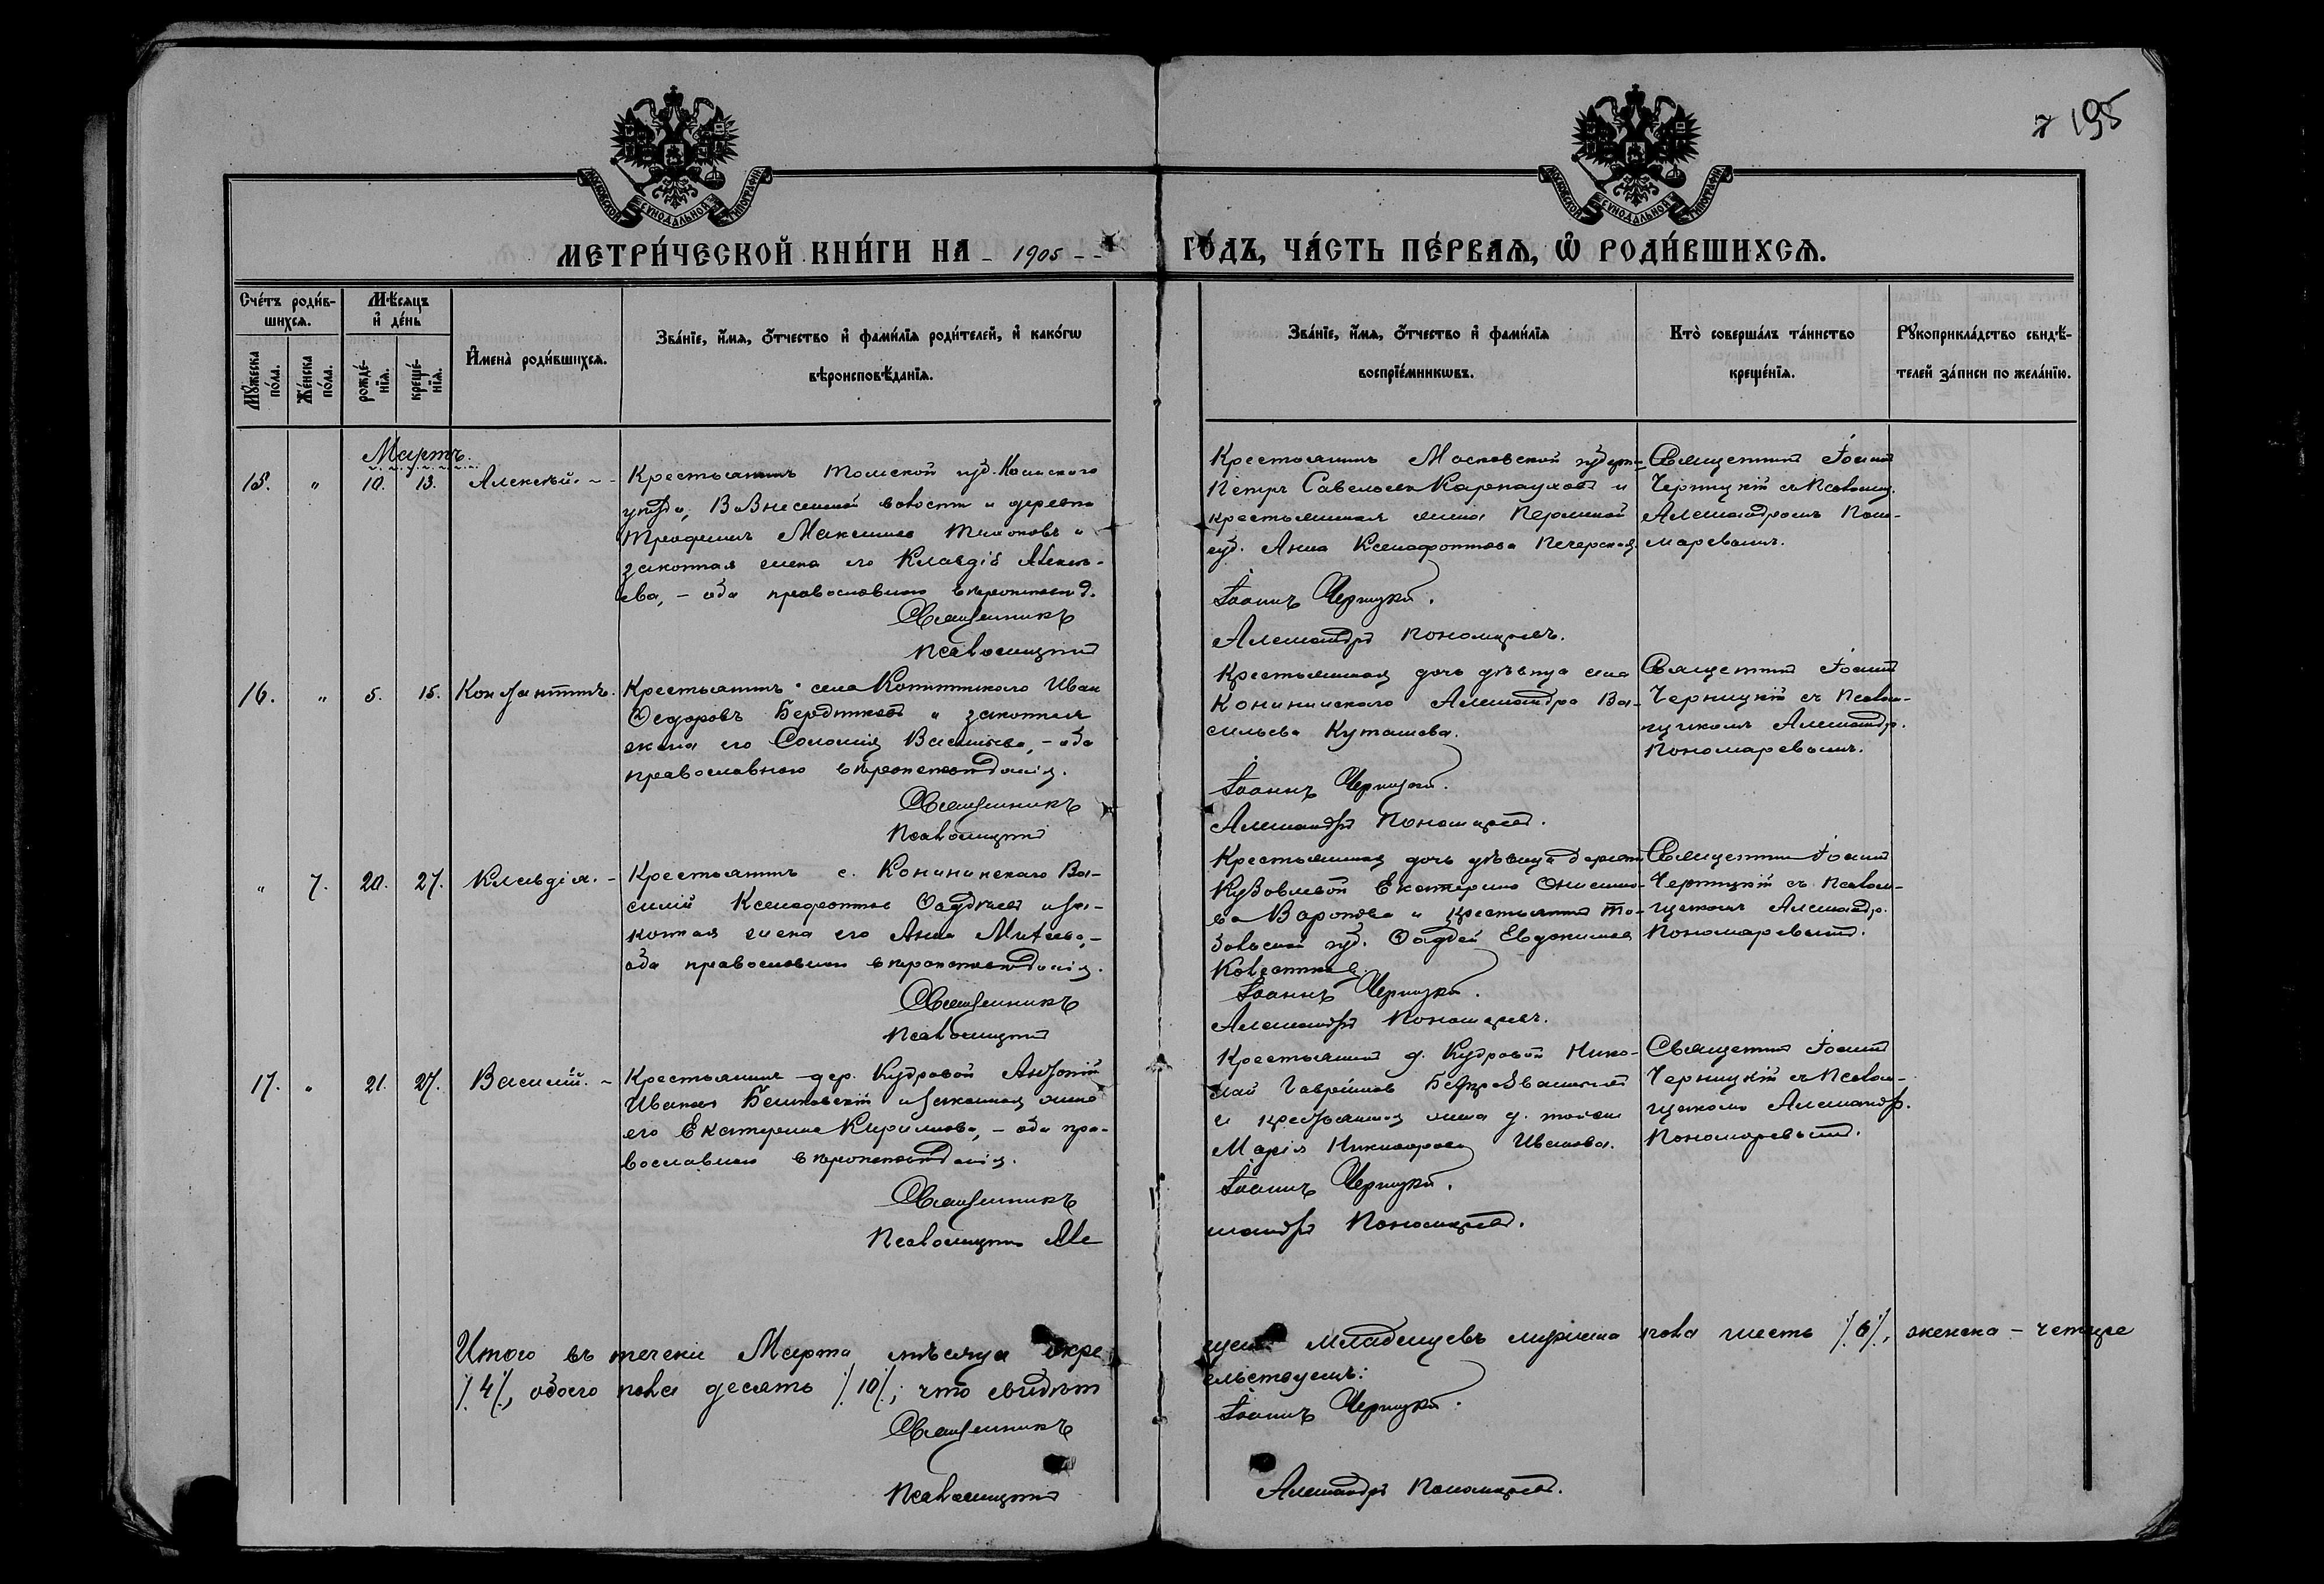 195
МОСКОВСКОЙ СѴНОДАЛЬНОЙ ТИПОГРАФІИ
МОСКОВСКОЙ СѴНОДАЛЬНОЙ ТИПОГРАФІИ
МЕТРИ́ЧЕСКОЙ КНИ́ГИ НА 1905 ГО́ДЪ, ЧА́СТЬ ПЕ́РВАѦ, Ѽ РОДИ́ВШИХСѦ.
Сче́тъ роди́вшихсѧ.
Мꙋ́жеска по́ла.
Же́нска по́ла.
Мѣ́сѧцъ и҆ де́нь
рожде́нїѧ.
креще́нїѧ.
И҆мена̀ роди́вшихсѧ.
Зва́нїе, и҆́мѧ, ѻ҆́тчество и҆ фами́лїѧ роди́телей, и҆ како́гѡ
вѣроисповѣ́данїѧ.
Зва́нїе, и҆́мѧ, ѻ҆́тчество и҆ фами́лїѧ
воспрїе́мникѡвъ.
Кто̀ соверша́лъ та́инство
креще́нїѧ.
Рꙋкоприкла́дство свидѣ́-
телей за́писи по жела́нїю.
Мартъ.
15. " 10. 13. Алексѣй.
Крестьянинъ Томской губ. Каинскаго
уѣзда, Вознесенской волости и деревни
Трофимъ Максимовъ Тихоновъ и
законная жена его Клавдія Алексѣ-
ева, – оба православнаго вѣроисповѣд.
Священникъ
Псаломщикъ
Крестьянинъ Московской губерн.
Петръ Савельевъ Карнауховъ и
крестьянская жена Пермской
губ. Анна Ксенофонтова Печерская
Іоаннъ Черницкій.
Александръ Пономаревъ.
Священникъ Іоаннъ
Черницкій съ Псаломщ.
Александромъ Поно-
маревымъ.
16. " 5. 15. Константинъ.
Крестьянинъ села Иван
Ѳедоровъ Бердниковъ и законная
жена его Соломія Васильева, – оба
православнаго вѣроисповѣданія.
Священникъ
Псаломщикъ
Крестьянская дочь дѣвица села
Александра Ва-
сильева Куташева.
Іоаннъ Черницкій.
Александръ Пономаревъ.
Священникъ Іоаннъ
Черницкій съ Псалом-
щикомъ Александр.
Пономаревымъ.
" 7. 20. 27. Клавдія.
Крестьянинъ с. Ва-
силій Ксенофонтовъ и за-
конная жена его Анна
оба православнаго вѣроисповѣданія.
Священникъ
Псаломщикъ
Крестьянская дочь дѣвица деревни
Екатерина Онисимо-
ва и крестьянинъ То-
больской губ. Ѳаддей Евдокимовъ
Іоаннъ Черницкій.
Александръ Пономаревъ.
Священникъ Іоаннъ
Черницкій съ Псалом-
щикомъ Александр.
Пономаревымъ.
17. " 21. 27. Василій.
Крестьянинъ дер. Кудровой Антоній
Ивановъ и законная жена
его Екатерина Кирилова, – оба пра-
вославнаго вѣроисповѣданія.
Священникъ
Псаломщикъ Але
Крестьянинъ д. Кудровой Нико-
лай Гавриловъ
и крестьянская жена д. той же
Марія Никифорова Иванова.
Іоаннъ Черницкій.
ксандръ Пономаревъ.
Священникъ Іоаннъ
Черницкій съ Псалом-
щикомъ Александр.
Пономаревымъ.
Итого въ теченіи Марта мѣсяца окре щено младенцевъ мужска пола шесть /6/, женска – четыре
/4/, обоего пола десять /10/; что свидѣт ельствуемъ:
Священникъ Іоаннъ Черницкій.
Псаломщикъ Александръ Пономаревъ.